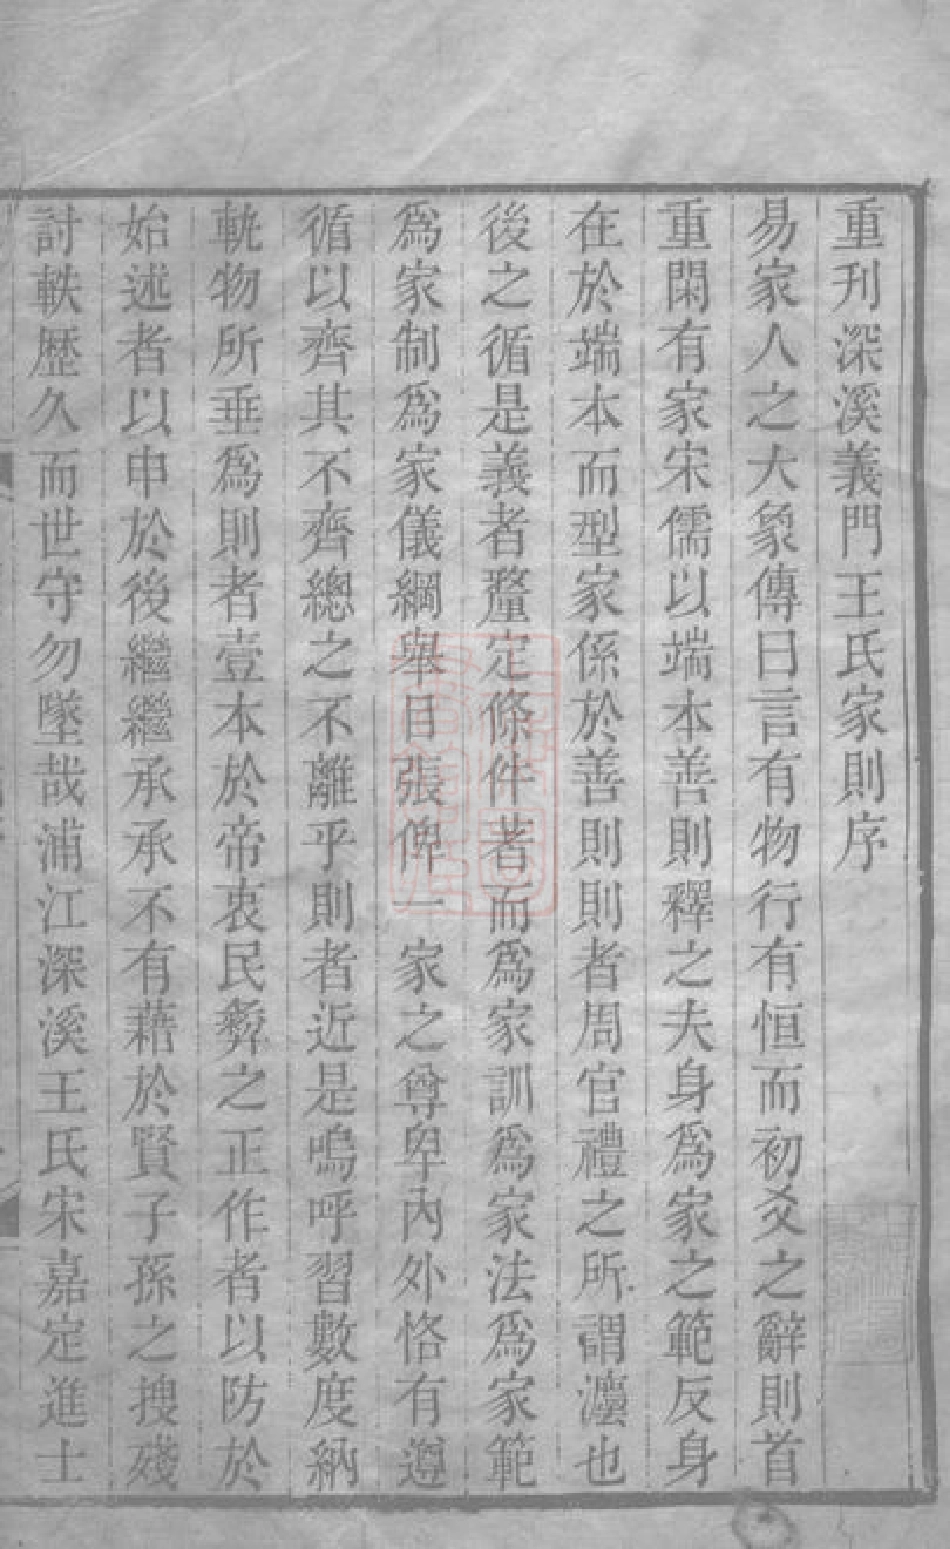 重刊深溪義門王氏家則序
易家人之大象傳曰言有物行有恒而初爻之辭則首
重閑有家宋儒以端本善則釋之夫身爲家之範反身
在於端本而型家係於善則則者周官禮之所謂灋也
後之循是義者釐定條件著而爲家訓爲家法爲家範
爲家制爲家儀綱舉目張俾一家之尊卑內外恪有遵
循以齊其不齊總之不離乎則者近是嗚呼習數度納
軌物所垂爲則者壹本於帝衷民彝之正作者以防於
始述者以申於後繼繼承承不有藉於賢子孫之搜殘
討軼歷久而世守勿墜哉浦江深溪王氏宋嘉定進士